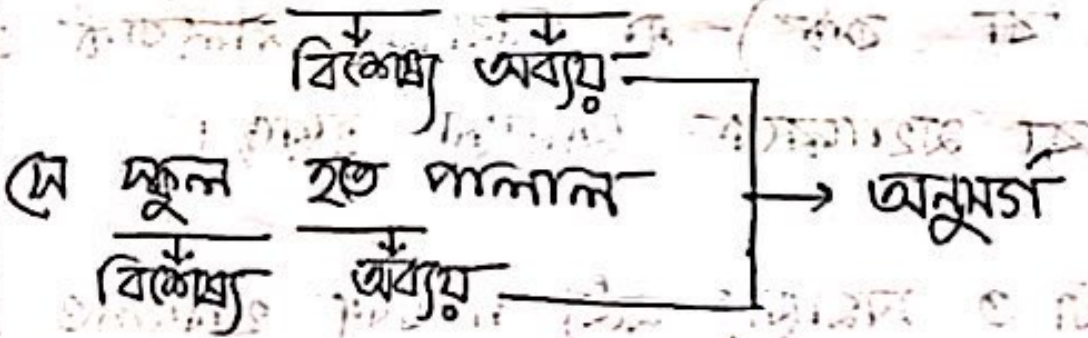 বিশেষ্য অব্যয়
সে স্কুল হতে পালাল → অনুসর্গ
বিশেষ্য অব্যয়